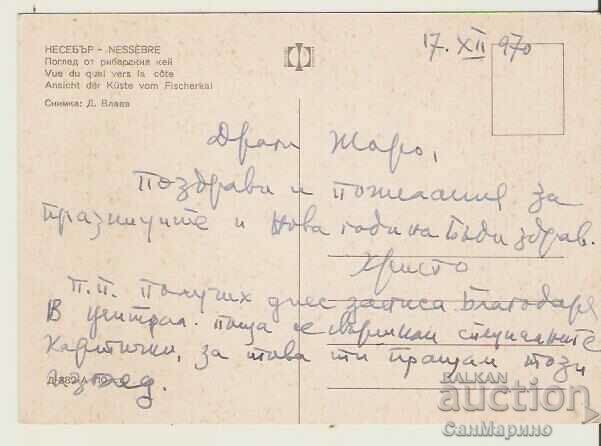 17. XII 970
НЕСЕБЪР – NESSÈBRE
Поглед от рибарския кей
Vue du quai vers la côte
Ansicht der Küste vom Fischerkai
Снимка: Д. Влаев
Драги Жоро,
Поздрави и пожелания за
празниците и Нова година Бъди здрав.
Христо
П.П. Получих днес записа Благодаря
В централ. поща се свършили специалните
Картички, за това ти пращам този
изглед.
Д-882-А
BALKAN
auction
СанМарино